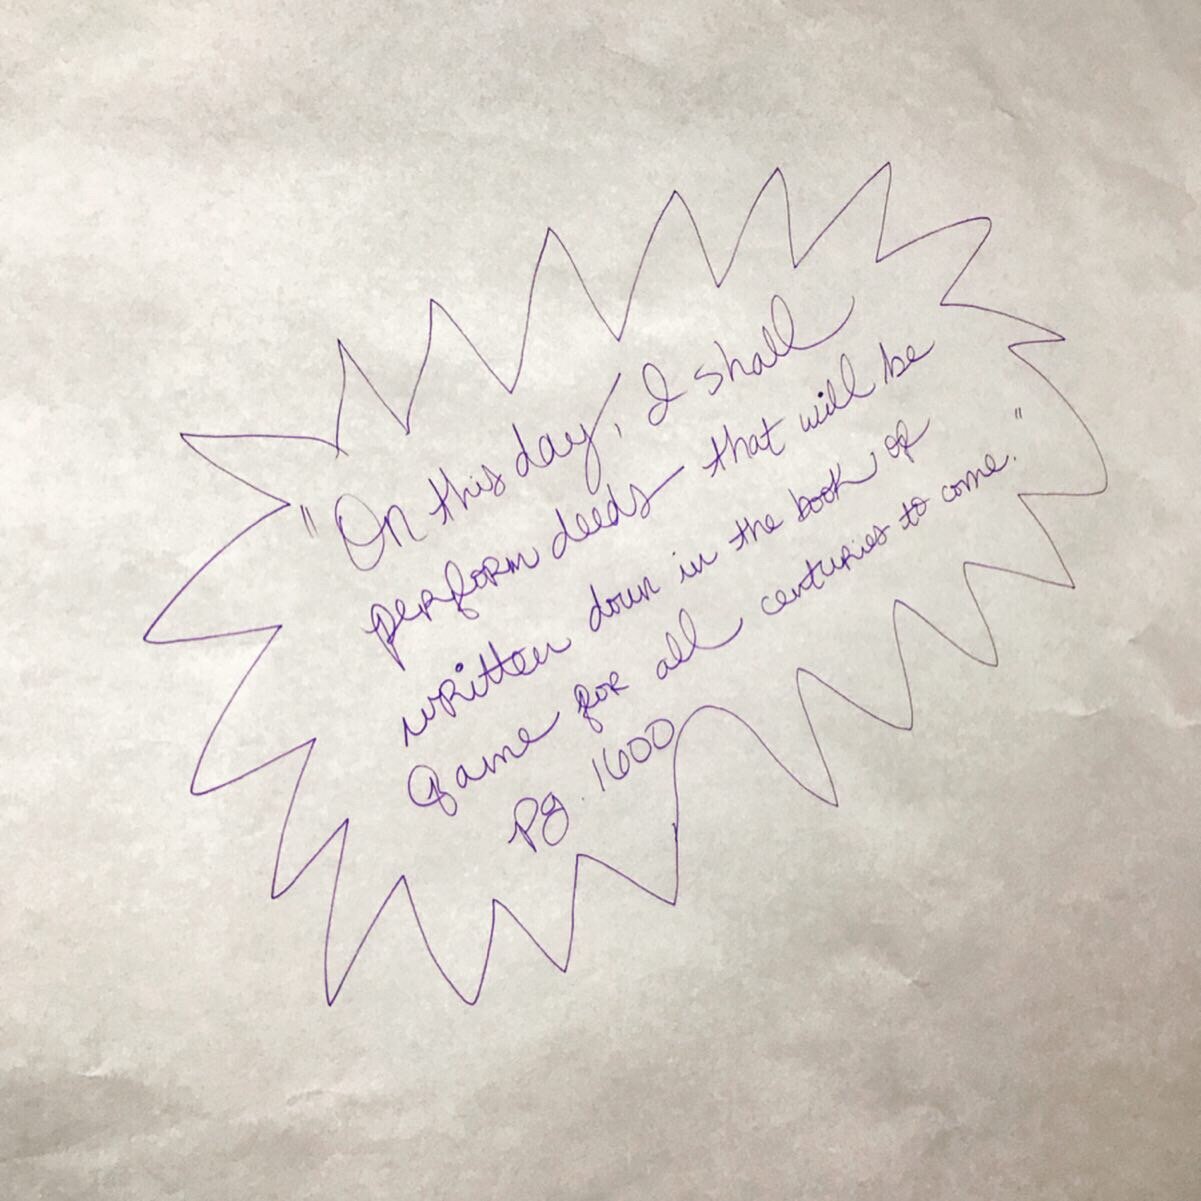 "On this day, I shall
perform deeds that will be
written down in the book of
fame for all centuries to come."
pg. 1600